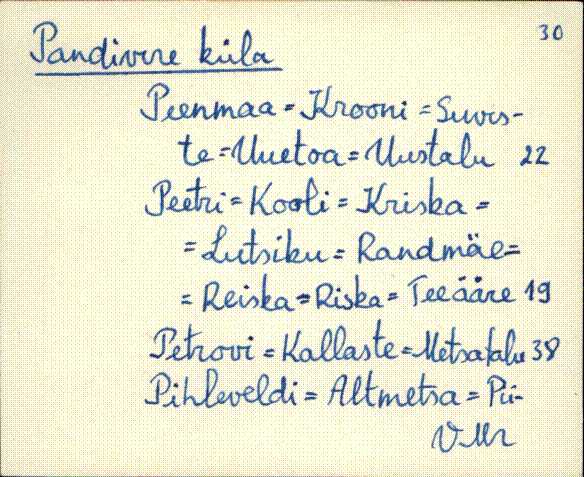 30
Pandivere küla
Peenmaa = Krooni = Suves-
te = Uuetoa = Uustalu 22
Peetri = Kooli = Kriska =
= Lutsiku = Randmäe =
= Reiska = Riska = Teeääre 19
Petrovi = Kallaste = Metsatalu 38
Pihleveldi = Altmetsa = Pii-
VMr